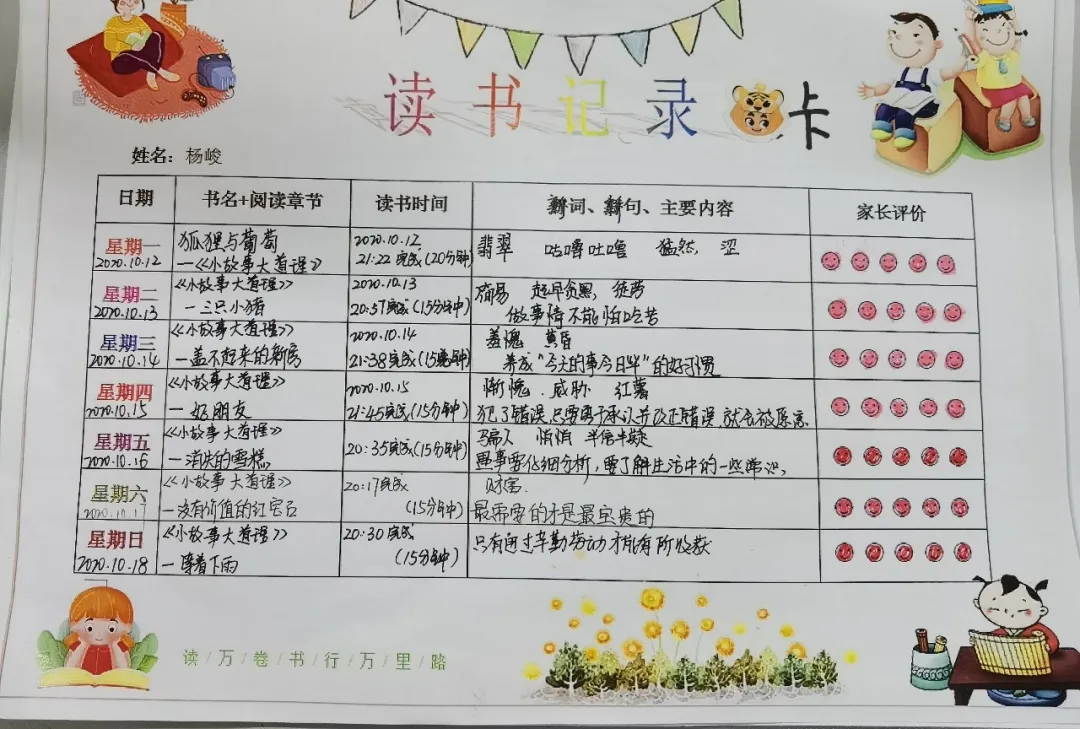 读书记录卡
姓名：杨峻
日期 书名+阅读章节 读书时间 新词、新句、主要内容 家长评价
星期一 狐狸与葡萄 2020.10.12 翡翠 咕噜吐噜 猛然, 涩
2020.10.12 —《小故事大道理》 21:22完成(20分钟)
星期二 《小故事大道理》 2020.10.13 简易 起早贪黑,
2020.10.13 —三只小猪 20:57完成(15分钟) 做事情不能怕吃苦
星期三 《小故事大道理》 2020.10.14 羞愧 黄昏
2020.10.14 —盖不起来的新房 21:38完成(15分钟) 养成"今天的事今日毕"的好习惯
星期四 《小故事大道理》 2020.10.15 惭愧. 威胁 红薯
2020.10.15 —好朋友 21:45完成(15分钟) 犯了错误,只要勇于承认并改正错误,就会被原谅
星期五 《小故事大道理》 20:35完成(15分钟) 骗人 悄悄 半信半疑
2020.10.16 —消失的雪糕 遇事要仔细分析,要了解生活中的一些常识,
星期六 《小故事大道理》 20:17完成 财富.
2020.10.17 —没有价值的红宝石 (15分钟) 最需要的才是最宝贵的
星期日 《小故事大道理》 20:30完成 只有通过辛勤劳动才能有所收获
2020.10.18 —等着下雨 (15分钟)
读/万/卷/书/行/万/里/路